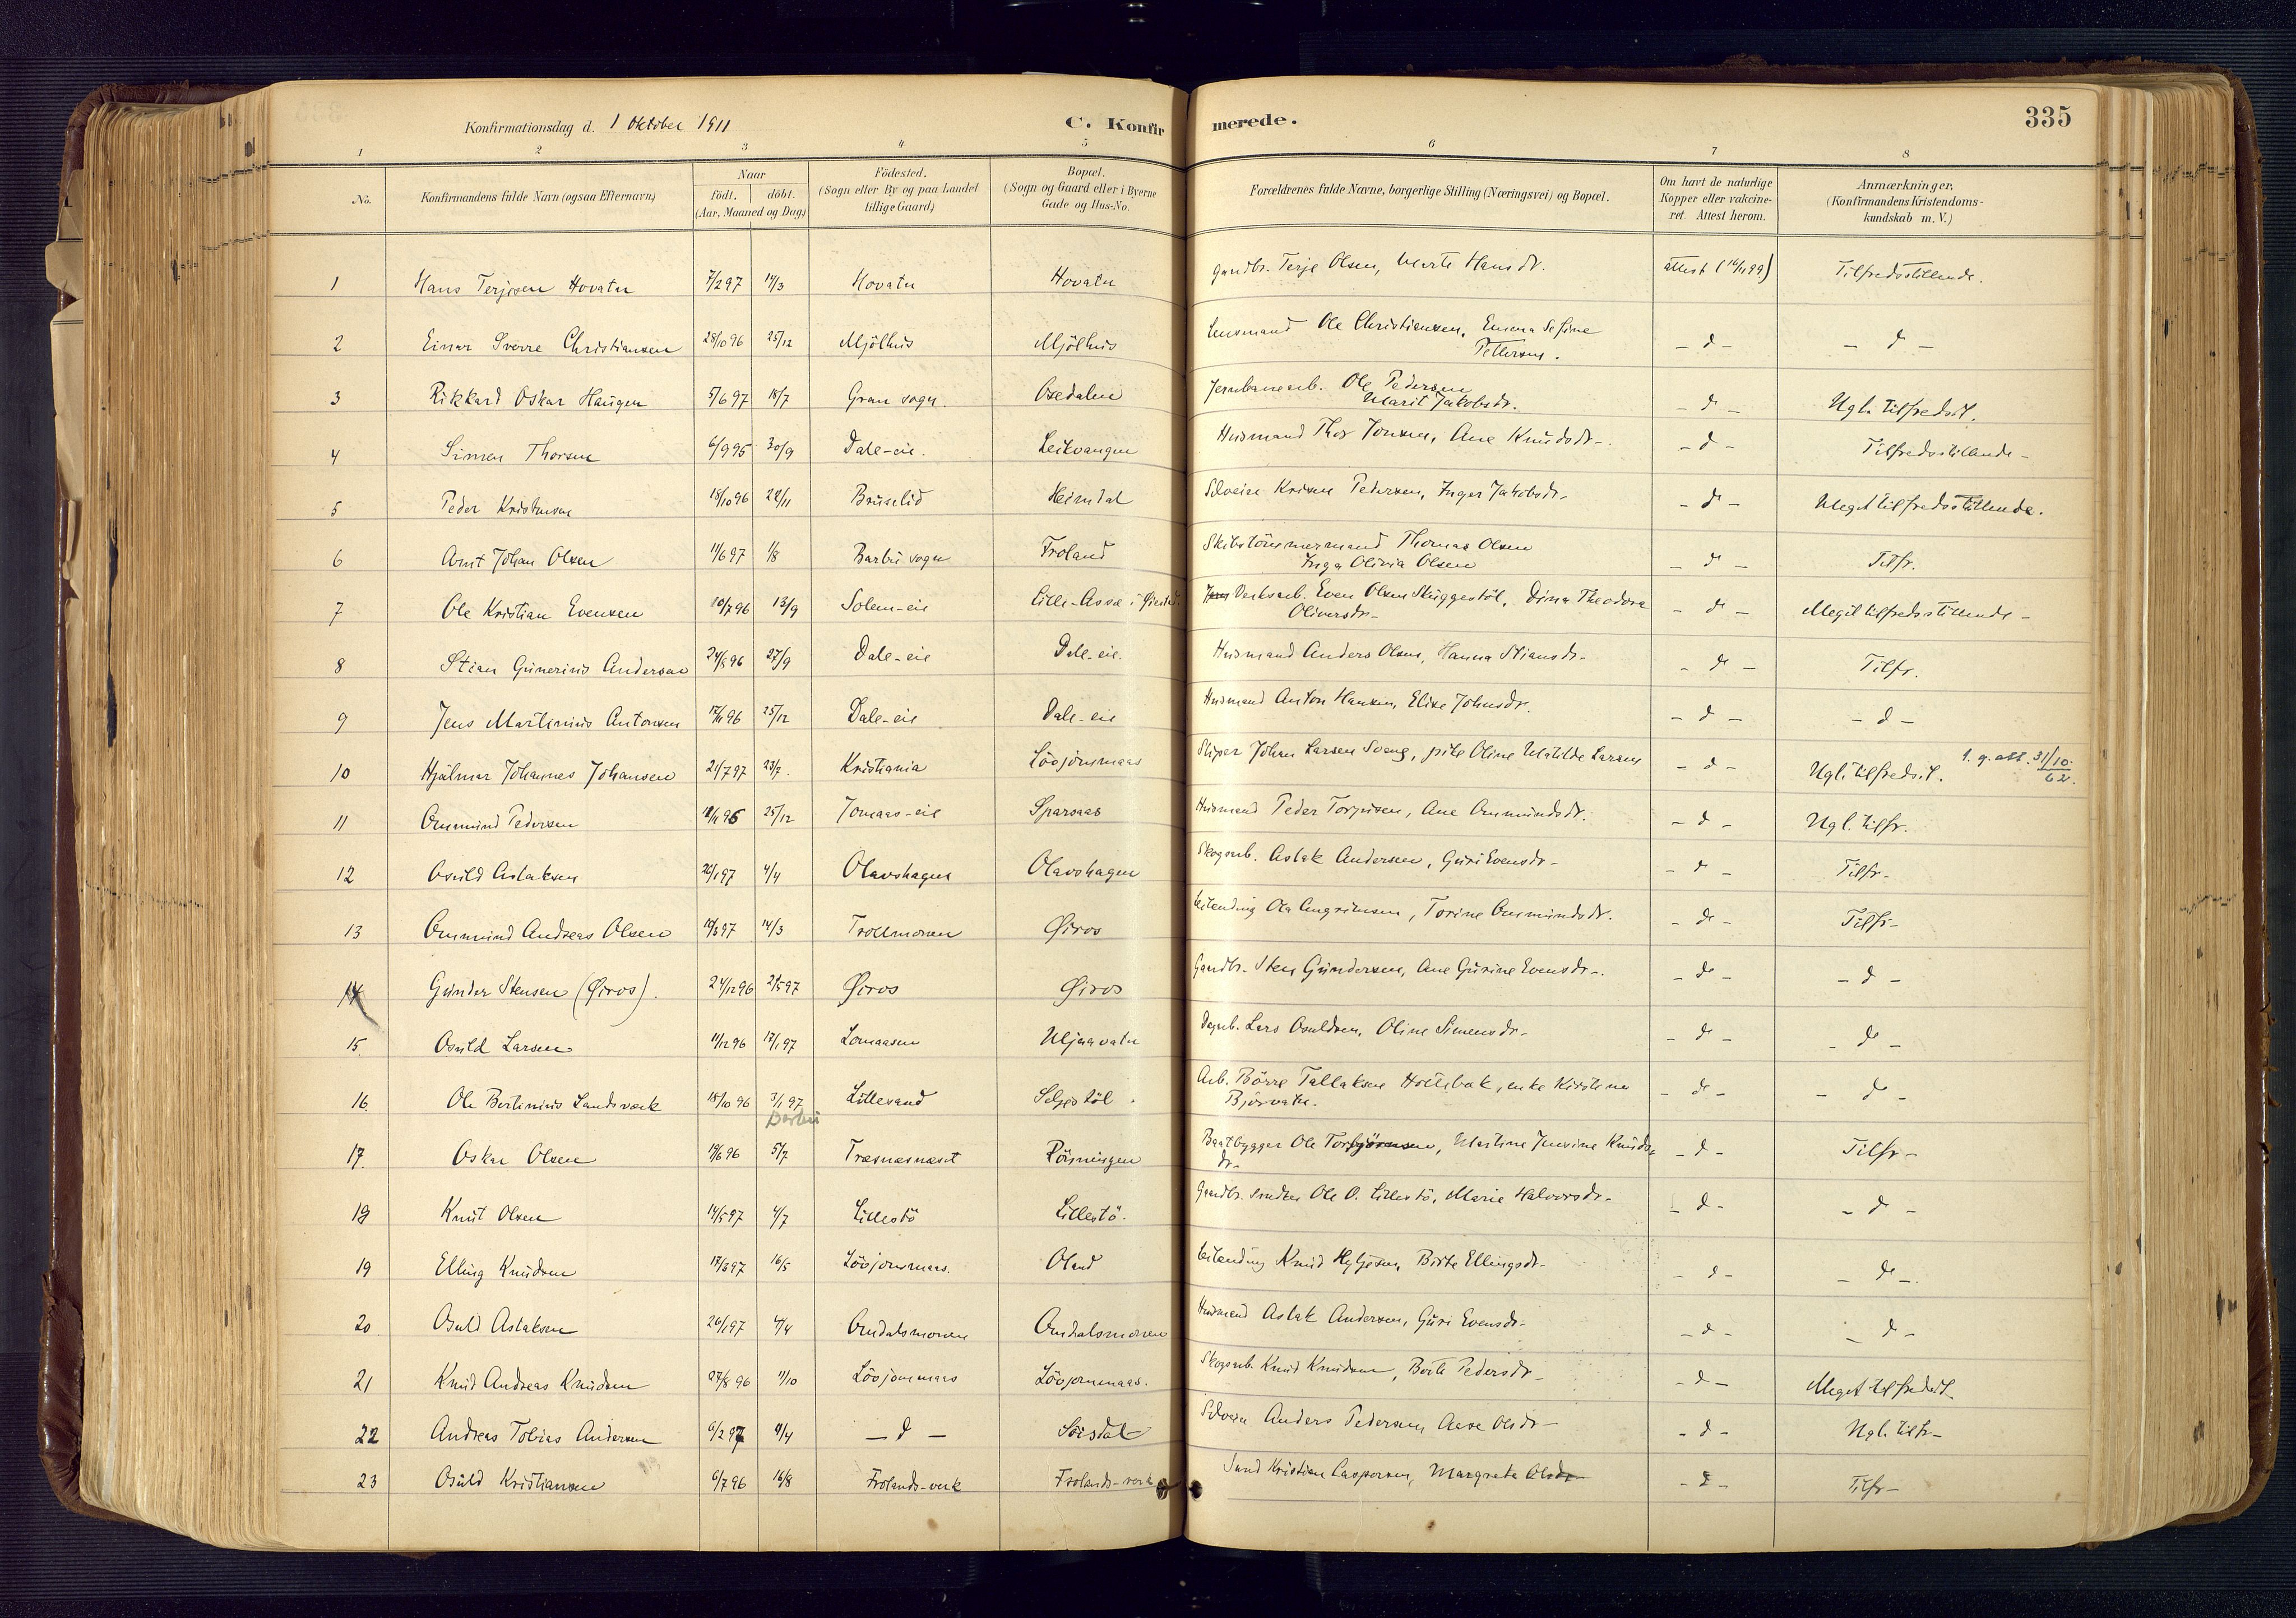 Konfirmationsdag d. 1 Oktober 1911 C. Konfir merede. 335
1 2 3 4 5 6 7 8
No. Konfirmandens fulde Navn (ogsaa Efternavn) Naar født. døbt. (Aar, Maaned og Dag) Fødested. (Sogn eller By og paa Landet tillige Gaard) Bopæl. (Sogn og Gaard eller i Byerne Gade og Hus-No. Forældrenes fulde Navne, borgerlige Stilling (Næringsvei) og Bopæl. Om havt de naturlige Kopper eller vakcineret. Attest herom. Anmærkninger. (Konfirmandens Kristendomskundskab m. V.)
1 Hans Terjesen Hovatn 7/2 97 14/3 Hovatn Hovatn Gaardbr. Terje Olsen, Marte Hansdr. attest (16/11 99) Tilfredsstillende.
2 Einar Sverre Christiansen 28/10 96 25/12 Mjölhus Mjölhus Lensmand Ole Christiansen, Emma Sefine Pettersen. – d – – d –
3 Rikkard Oskar Haugen 5/6 97 18/7 Gran sogn. Osedalen Jernbanearb. Ole Pedersen Marit Jakobsdr. – d – Ngl. tilfredsst.
4 Simen Thorsen 6/9 95 30/9 Dale-eie. Leikvangen Husmand Thor Jonsen, Ane Knudsdr. – d – Tilfredsstillende –
5 Peder Kristensen 18/10 96 22/11 Bruselid Heimdal Selveier Krisen Pedersen, Inger Jakobsdr. – d – Meget tilfredsstillende.
6 Arnt Johan Olsen 11/6 97 1/8 Barbu sogn Froland Skibstömmermand Thomas Olsen Inga Olivia Olsen – d – Tilfr.
7 Ole Kristian Evensen 10/7 96 13/9 Solem-eie Lille-Assæ i Gjerstad Verksarb. Even Olsen Skuggestöl, Dina Theodora Oliversdr. – d – Meget tilfredsstillende –
8 Stian Gunerius Andersen 24/8 96 27/9 Dale-eie Dale-eie. Husmand Anders Olsen, Hanna Stiansdr. – d – Tilfr.
9 Jens Martinius Antonsen 17/11 96 25/12 Dale-eie Dale-eie Husmand Anton Hansen, Elise Johnsdr. – d – – d –
10 Hjalmar Johannes Johansen 21/7 97 23/7. Kristiania Lövjomsmaas Skiper Johan Larsen Svang, pike Oline Matilde Larsen – d – Ngl. tilfredsst. 1. g. att. 31/10-62.
11 Ommund Pedersen 18/11 96 25/12 Jomaas-eie Sparsaas Husmand Peder Torjusen, Ane Ommundsdr. – d – Ngl. tilfr.
12 Osuld Aslaksen 26/1 97 4/4 Olavshagen Olavshagen Skogsarb. Aslak Andersen, Guri Evensdr – d – Tilfr.
13 Ommund Andreas Olsen 14/3 Trollmonen Öiros leilending Ola Angrimsen, Torine Ommundsdr. – d – Tilfr –
14 Gunder Stensen (Öiros). 24/12 96 2/5 97 Öiros Öiros Gaardbr. Sten Gundersen, Ane Gurine Evensdr. – d – – d –
15 Osuld Larsen 11/12 96 17/1 97 Lomaasen Uljaavatn Dagarb. Lars Osuldsen, Oline Simensdr – d – – d –
16 Ole Bertinius Landsverk 18/10 96 3/1 97 Barbu Lillesand Selgestöl. Arb. Börre Tallaksen Holtebak, enke Kirstene Bjorvatn. – d – – d –
17 Oskar Olsen 19/6 96 5/7 Træsnæsnæset Rösningen Baatbygger Ole Torbjörnsen, Martine Junine Knudsdr. – d – Tilfr –
18 Knut Olsen 14/5 97 4/7 Lillestö Lillestö. Gaardbr. smeden Ole O. Lillestö, Marie Halvorsdr. – d – – d –
19 Elling Knudsen 17/3 97 16/5 Lövjomsmaas. Oland leilending Knud Hylgesen, Birte Ellingsdr – d – – d –
20 Osuld Aslaksen 26/1 97 4/4 Omdalsmonen Omdalsmonen Husmand Aslak Andersen, Guri Evensdr. – d – – d –
21 Knud Andreas Knudsen 27/8 96 11/10 Lövjommaas Lövjommaas. Skogsarb. Knud Knudsen, Berte Pedersdr – d – Meget tilfredsst.
22 Andreas Tobias Andersen 6/2 97 4/4 – d – Sörsdal Selveier Anders Pedersen, Aase Olsdr – d – Ngl. tilfr –
23 Osuld Kristiansen 6/7 96 16/8 Frolands-verk Frolands-verk Smed Kristian Caspersen, Margrete Olsdr – d – Tilfr –